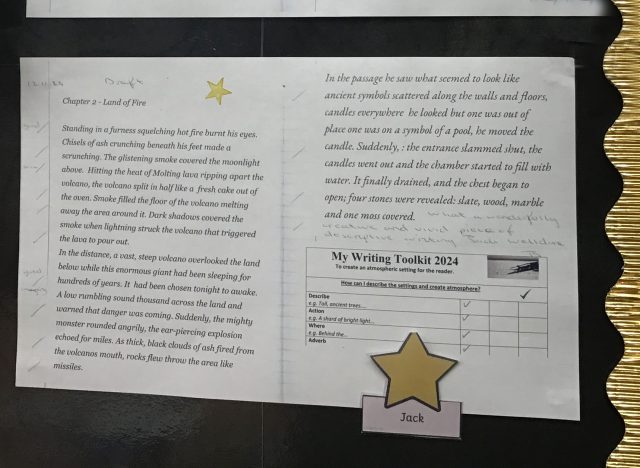 12.11.24 Draft
Chapter 2 - Land of Fire
Standing in a furness squelching hot fire burnt his eyes.
Chisels of ash crunching beneath his feet made a
scrunching. The glistening smoke covered the moonlight
above. Hitting the heat of Molting lava ripping apart the
volcano, the volcano split in half like a fresh cake out of
the oven. Smoke filled the floor of the volcano melting
away the area around it. Dark shadows covered the
smoke when lightning struck the volcano that triggered
the lava to pour out.
In the distance, a vast, steep volcano overlooked the land
below while this enormous giant had been sleeping for
hundreds of years. It had been chosen tonight to awake.
A low rumbling sound thousand across the land and
warned that danger was coming. Suddenly, the mighty
monster rounded angrily, the ear-piercing explosion
echoed for miles. As thick, black clouds of ash fired from
the volcanos mouth, rocks flew throw the area like
missiles.
In the passage he saw what seemed to look like
ancient symbols scattered along the walls and floors,
candles everywhere he looked but one was out of
place one was on a symbol of a pool, he moved the
candle. Suddenly, : the entrance slammed shut, the
candles went out and the chamber started to fill with
water. It finally drained, and the chest began to
open; four stones were revealed: slate, wood, marble
and one moss covered. What a wonderfully
creative and vivid piece of
descriptive writing Jack welldone
My Writing Toolkit 2024
To create an atmospheric setting for the reader.
How can I describe the settings and create atmosphere?
Describe
e.g. Tall, ancient trees...
Action
e.g. A shard of bright light...
Where
e.g. Behind the...
Adverb
Jack